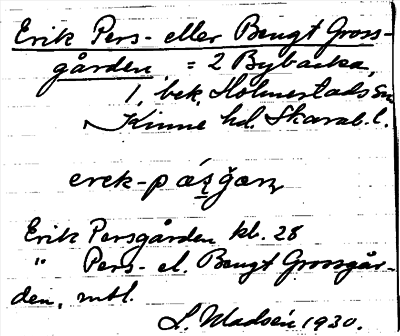 Erik Pers- eller Bengt Grors-
gården, = 2 Bybacka,
1, bek, Holmestads Sn
Kinne hd. Skarab. l.
erek-pa
Erik Persgården kl. 28
" Pers- el. Bengt Grorsgår-
den, mtl.
L. Madsén 1930.